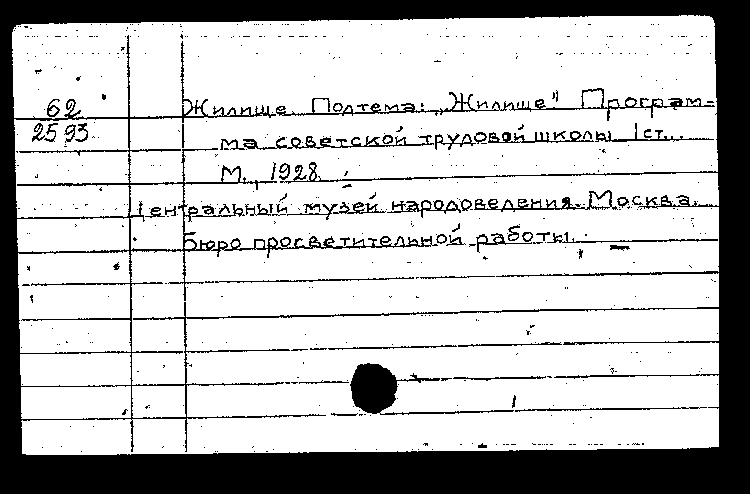 62
2593
Жилище. Подтема: „Жилище" Програм=
ма советской трудовой школы I ст.
М., 1928.
Центральный музей народоведения. Москва.
Бюро просветительной работы.